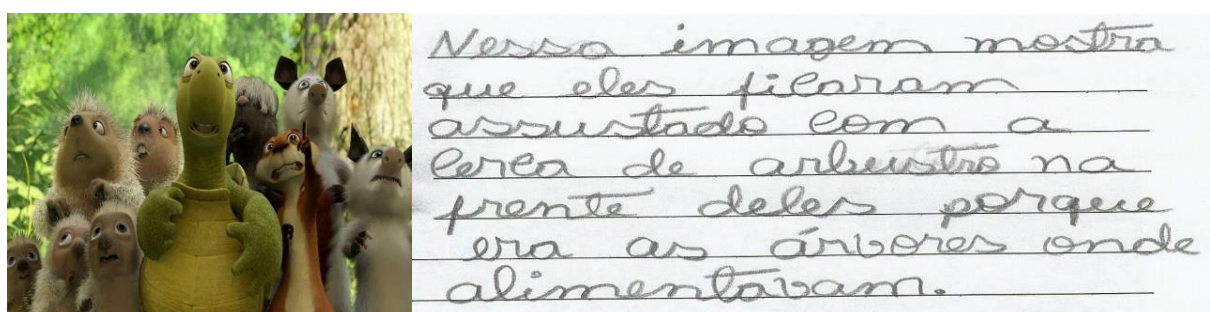 Nessa imagem mostra
que eles ficaram
assustado com a
cerca de arbustro na
frente deles porque
era as árvores onde
alimentavam.